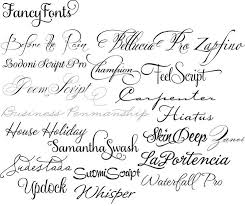 FancyFonts
Before the Rain Bellucia Pro Zapfino
Bodoni Script Pro Champion FeelScript
Poem Script Carpenter
Business Penmanship Hiatus
House Holiday SkinDeep Janet
SamanthaSwash
Sudestada SuomiScript LaPortencia
Updock Whisper Waterfall Pro